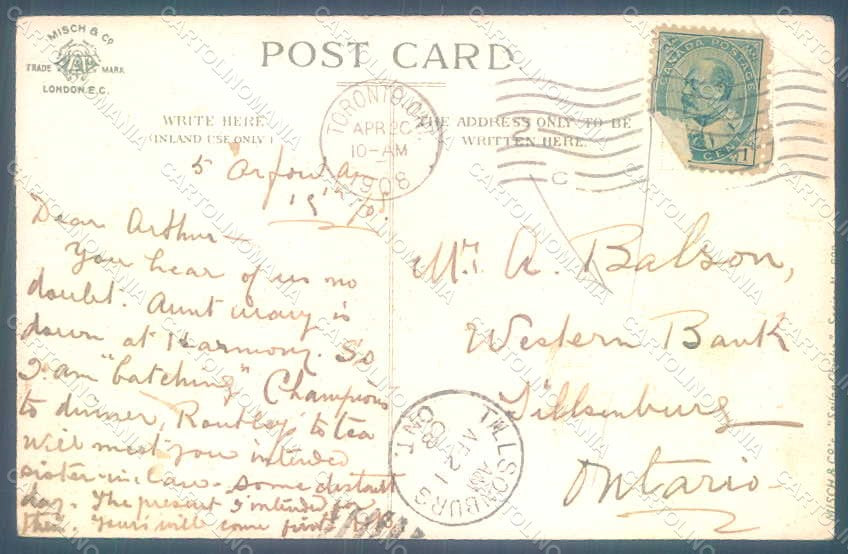 MISCH & Co
TRADE MARK
LONDON.E.C.
POST CARD
WRITE HERE
(INLAND USE ONLY)
THE ADDRESS ONLY TO BE
WRITTEN HERE.
TORONTO, ONT.
APR 20
10-AM
1908
CANADA POSTAGE
CENT
1
5
19
Dear Arthur –
You hear of us no
doubt. Aunt Mary is
down at Harmony. So
I am "batching" Champions
to dinner, Routleys to tea
Will meet your intended
sister-in-law some distant
day. The present I intended for
them. Yours will come first.
Mr. A. Balson,
Western Bank
Tillsonburg
Ontario
TILLSONBURG
AM
AP 21
08
ONT.
CARTOLINOMANIA